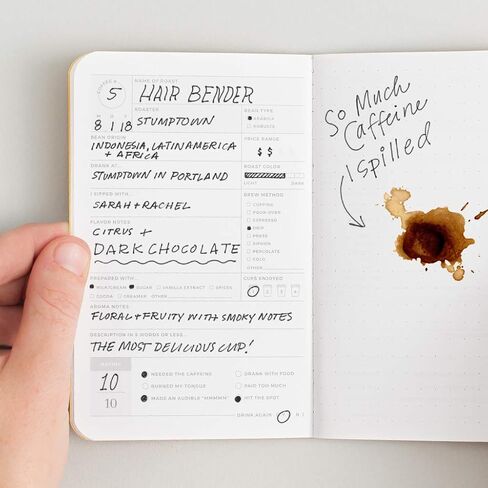 COFFEE #
5
NAME OF ROAST
HAIR BENDER
8 1 18
ROASTER
STUMPTOWN
BEAN TYPE
ARABICA
ROBUSTA
BEAN ORIGIN
INDONESIA, LATIN AMERICA
+ AFRICA
PRICE RANGE
$ $
DRANK AT...
STUMPTOWN IN PORTLAND
ROAST COLOR
LIGHT DARK
I SIPPED WITH...
SARAH + RACHEL
BREW METHOD
CUPPING
POUR-OVER
ESPRESSO
DRIP
PRESS
SIPHON
PERCOLATE
COLD
OTHER
FLAVOR NOTES
CITRUS +
DARK CHOCOLATE
PREPARED WITH...
MILK/CREAM SUGAR VANILLA EXTRACT SPICES
COCOA CREAMER OTHER
CUPS ENJOYED
1 2 3 4
AROMA NOTES
FLORAL + FRUITY WITH SMOKY NOTES
DESCRIPTION IN 5 WORDS OR LESS...
THE MOST DELICIOUS CUP!
RATING
10
10
NEEDED THE CAFFEINE DRANK WITH FOOD
BURNED MY TONGUE PAID TOO MUCH
MADE AN AUDIBLE "MMMMM" HIT THE SPOT
DRINK AGAIN Y N
So Much
Caffeine
I spilled